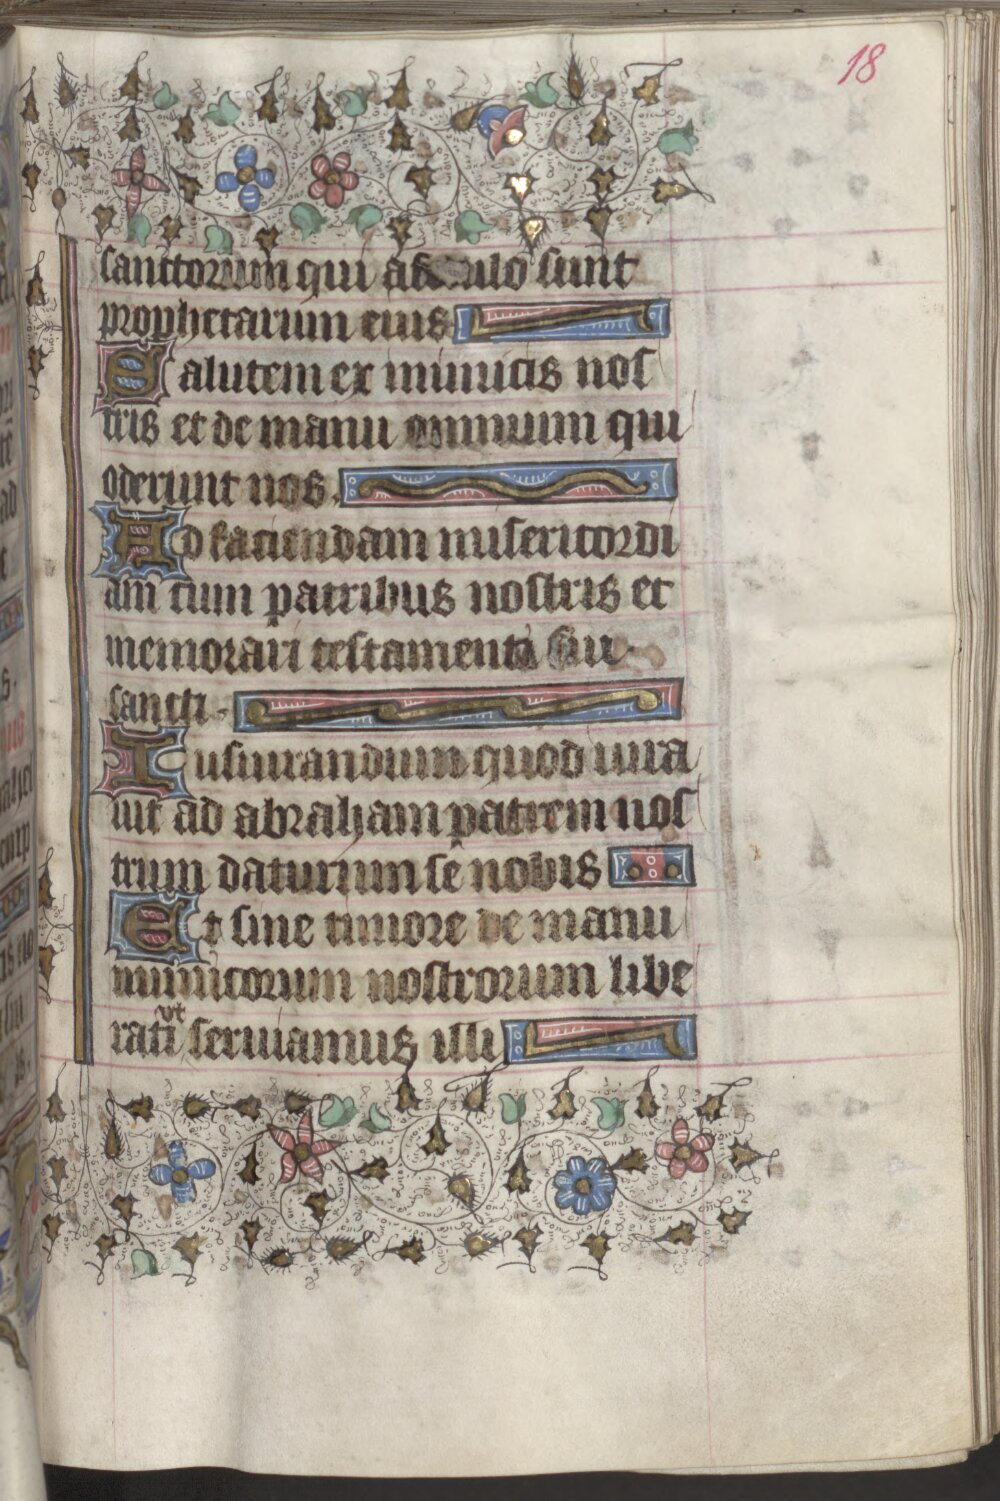 18
sanctorum qui a sunt
prophetarum eius
Salutem ex inimicis nos
tris et de manu omnium qui
oderunt nos.
Ad faciendam misericordi
am cum patribus nostris et
memorari testamenti sui
sancti.
Iusiurandum quod iura
uit ad abraham patrem nos
trum daturum se nobis
Et sine timore de manu
inimicorum nostrorum libe
rati ut seruiamus illi